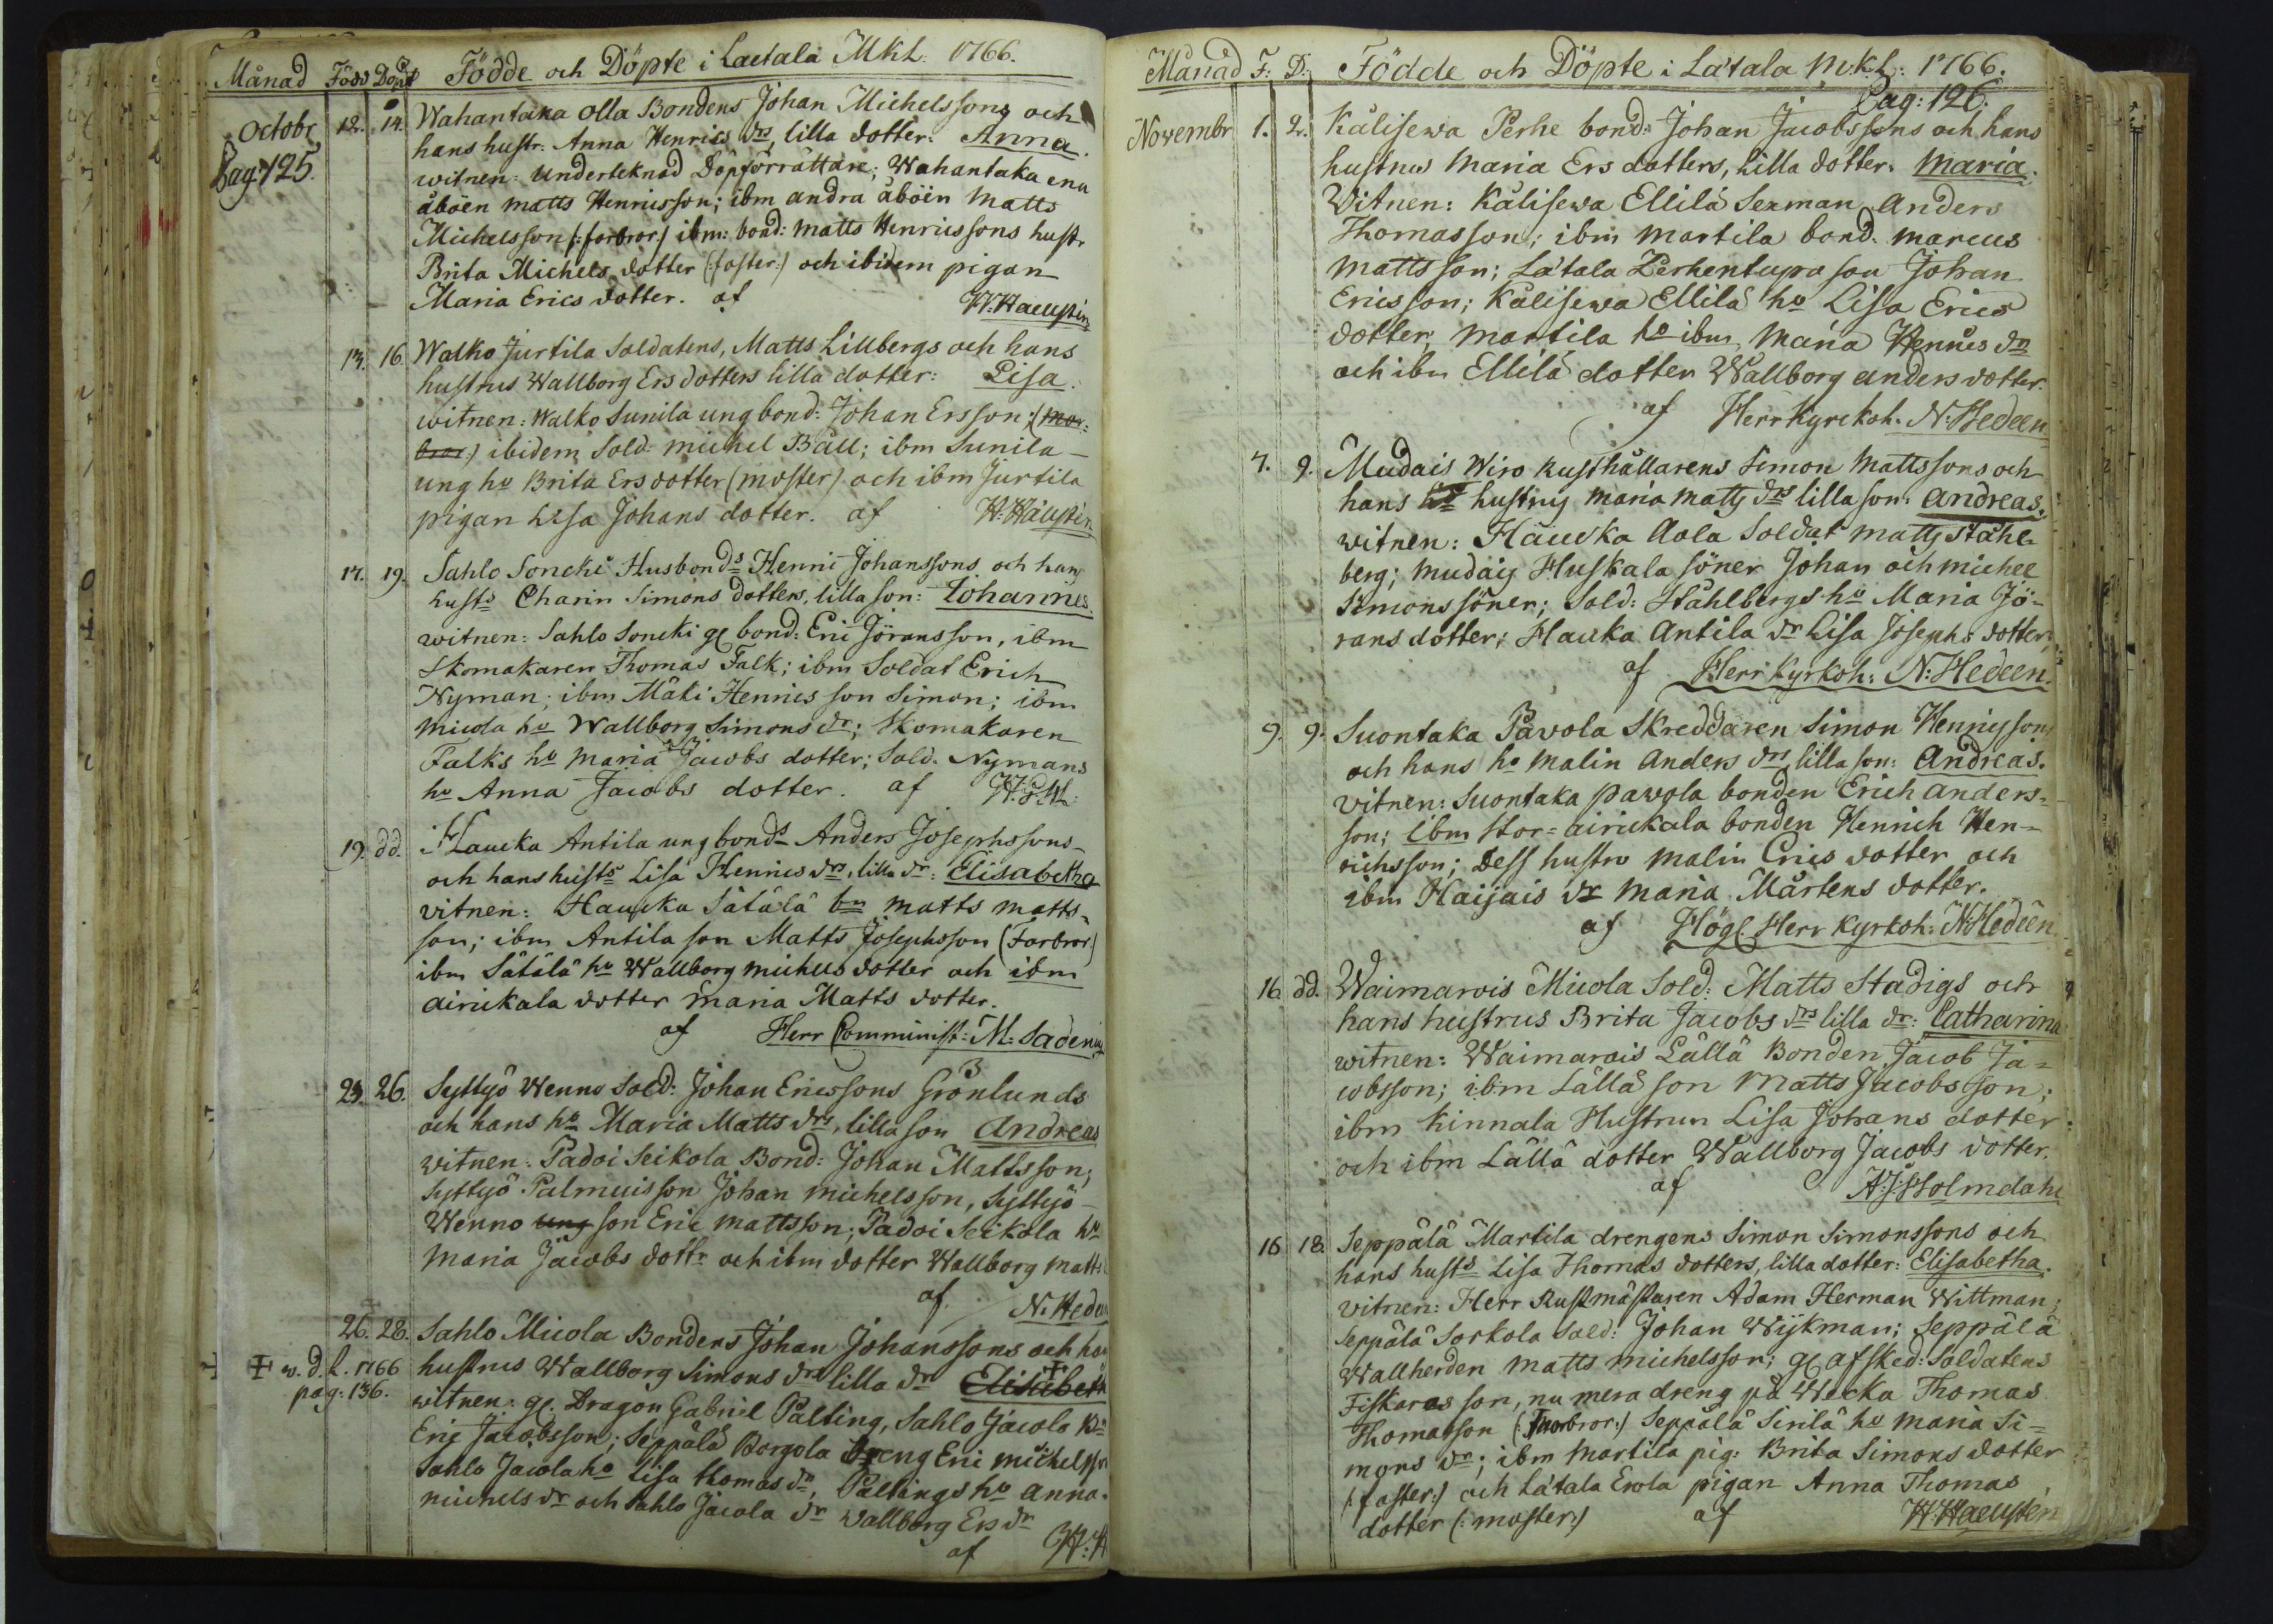 Månad Född Döpt Födde och Döpte i Laetala Mkl. 1766.
Octobr Pag: 125.
12. 14. Wahantaka Olla Bondens Johan Michelssons och
hans hustr: Anna Henrics drs, lilla dotter. Anna.
witnen: Underteknad Döpförrättare; Wahantaka ena
åboen Matts Henricsson; ibm andra åboen Matts
Michelsson (: farbror:) ibm: bond: Matts Henricssons hustr
Brita Michels dotter (: faster:) och ibidem pigan
Maria Erics dotter. af H: Haeusten
13. 16. Walko Jurtila Soldatens, Matts Lillbergs och hans
hustrus Wallborg Ersdotters lilla dotter: Lisa.
witnen: Walko Sunila ung bond: Johan Ersson; (mor-
bror:) ibidem Sold: Michel Bäll; ibm Sunila
ung ho Brita Ersdotter (moster) och ibm Jurtila
pigan Lisa Johans dotter. af H: Häusten
17. 19. Sahlo Soncki Husbonds Henric Johanssons och hans
husts Charin Simons dotters, lilla son: Johannes.
witnen: Sahlo Soncki gl bond: Eric Jöransson, ibm
Skomakaren Thomas Falk; ibm Soldat Erich
Nyman; ibm Mäki Henrics son Simon; ibm
Micola ho Wallborg Simons dr; Skomakaren
Falks ho Maria Jacobs dotter; Sold. Nymans
ho Anna Jacobs dotter. af
19. dd. Haucka Antila ung bonds Anders Josephssons
och hans husts Lisa Henrics drs, lilla dr: Elisabetha
vitnen: Haucka Sätälä bn Matts Matts-
son; ibm Antila son Matts Josephsson (Farbror:)
ibm Sätälä ho Wallborg Michels dotter och ibm
Airickala dotter Maria Matts dotter.
af Herr Comminist: M: Sadenius
23. 26. Syttyö Wenno Sold: Johan Ericssons Grönlunds
och hans ho Maria Matts drs, lilla son Andreas
witnen: Padoi Seikola Bond: Johan Mattsson;
Syttyö Palmuis son Johan Michelsson, Syttyö
Wenno ung son Eric Mattsson; Padoi Seikola ho
Maria Jacobs dottr och ibm dotter Wallborg Matts
af N: Hedeen
26. 28. Sahlo Micola Bondens Johan Johanssons och hans
w. d. l. 1766 hustrus Wallborg Simons drs lilla dr Elisabeth
pag: 136. witnen: gl. Dragon Gabriel Palting, Sahlo Jacola Bn
Eric Jacobsson; Seppälä Borgola Dreng Eric Michelsson
Sahlo Jacola ho Lisa Thomas dr, Paltings ho Anna
Michels dr och Sahlo Jacola dr Wallborg Ers dr
af H: H
Månad F: D: Födde och Döpte i Lätala Mkl: 1766.
Pag: 126.
Novembr 1. 2. Kälisewa Perhe bond: Johan Jacobssons och hans
hustrus Maria Ers dotters, lilla dotter. Maria.
Witnen: Kälisewa Ellilä Sexman Anders
Thomasson; ibm Martila bond. Marcus
Mattsson; Lätala Perhentupa son Johan
Ericsson; Kälisewa Ellilä ho Lisa Erics
dotter, Martila ho ibm, Maria Henrics dr
och ibm Ellilä dotter Wallborg Anders dotter.
af Herr Kyrckoh. N: Hedeen
7. 9. Mudais Wiro Rusthållarens Simon Mattssons och
hans ho hustrus Maria Matts drs lilla son: Andreas.
witnen: Haucka Aola Soldat Matts Ståhl-
berg; Mudais Huskala söner Johan och Michel
Simons söner; Sold: Ståhlbergs ho Maria Jö-
rans dotter; Haucka Antila dr Lisa Josephs dotter,
af Herr Kyrkoh: N: Hedeen.
9. 9. Suontaka Pavola Skreddaren Simon Henricssons
och hans ho Malin Anders drs, lilla son: Andreas.
vitnen: Suontaka Pawola bonden Erich Anders-
son; ibm Stor-airickala bonden Henrich Hen-
richsson; Dess hustru Malin Erics dotter och
ibm Haijais dr Maria Mårtens dotter.
af Högl Herr Kyrkoh: N: Hedeen
16. dd. Waimarois Micola Sold: Matts Stadigs och
hans hustrus Brita Jacobs drs lilla dr: Catharina
witnen: Waimarois Lällä Bonden Jacob Ja-
cobsson; ibm Lällä son Matts Jacobsson;
ibm Kinnala Hustrun Lisa Johans dotter
och ibm Lällä dotter Wallborg Jacobs dotter.
af A: J: Holmdahl
16 18. Seppälä Martila drengens Simon Simonssons och
hans husts Lisa Thomas dotters, lilla dotter: Elisabetha.
vitnen: Herr Rustmästaren Adam Herman Wittman;
Seppälä Sorkola Sold: Johan Wijkman; Seppälä
Wallherden Matts Michelsson; gl afsked: Soldatens
Fiskares son, nu mera dreng på Wecka Thomas
Thomasson (: Morbror:) Seppälä Sirilä ho Maria Si-
mons dr; ibm Martila pig: Brita Simons dotter
(: faster:) och Lätala Erola pigan Anna Thomas
dotter (: moster:) af H: Haeusten